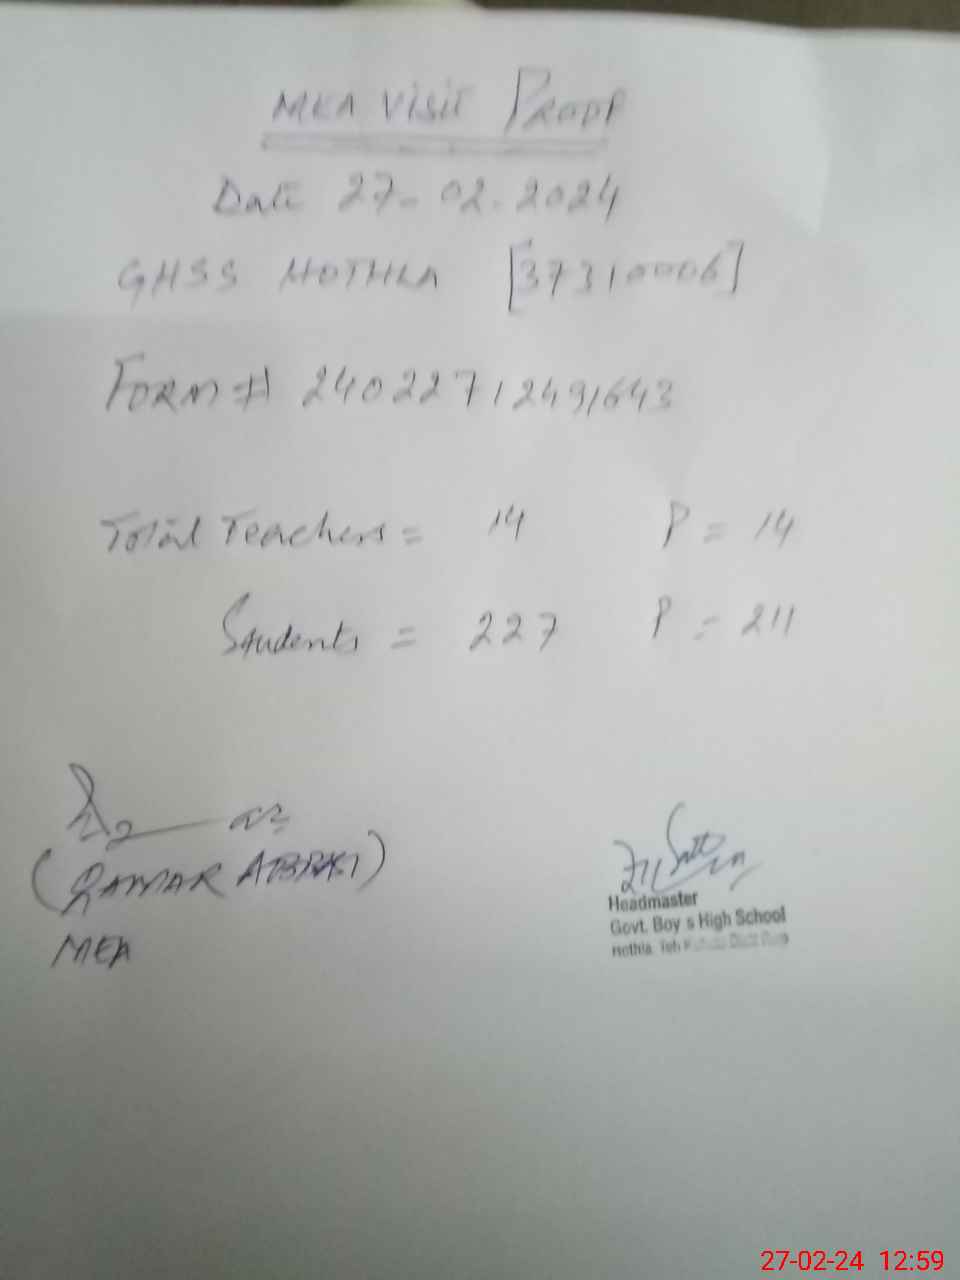 MEA Visit PROOF
Date 27-02-2024
GHSS HOTHLA [37310006]
FORM # 24022712491643
Total Teachers = 14 P = 14
Students = 227 P = 211
(QAMAR ABBAS)
MEA
Headmaster
Govt. Boy s High School
Hothla Teh Distt
27-02-24 12:59